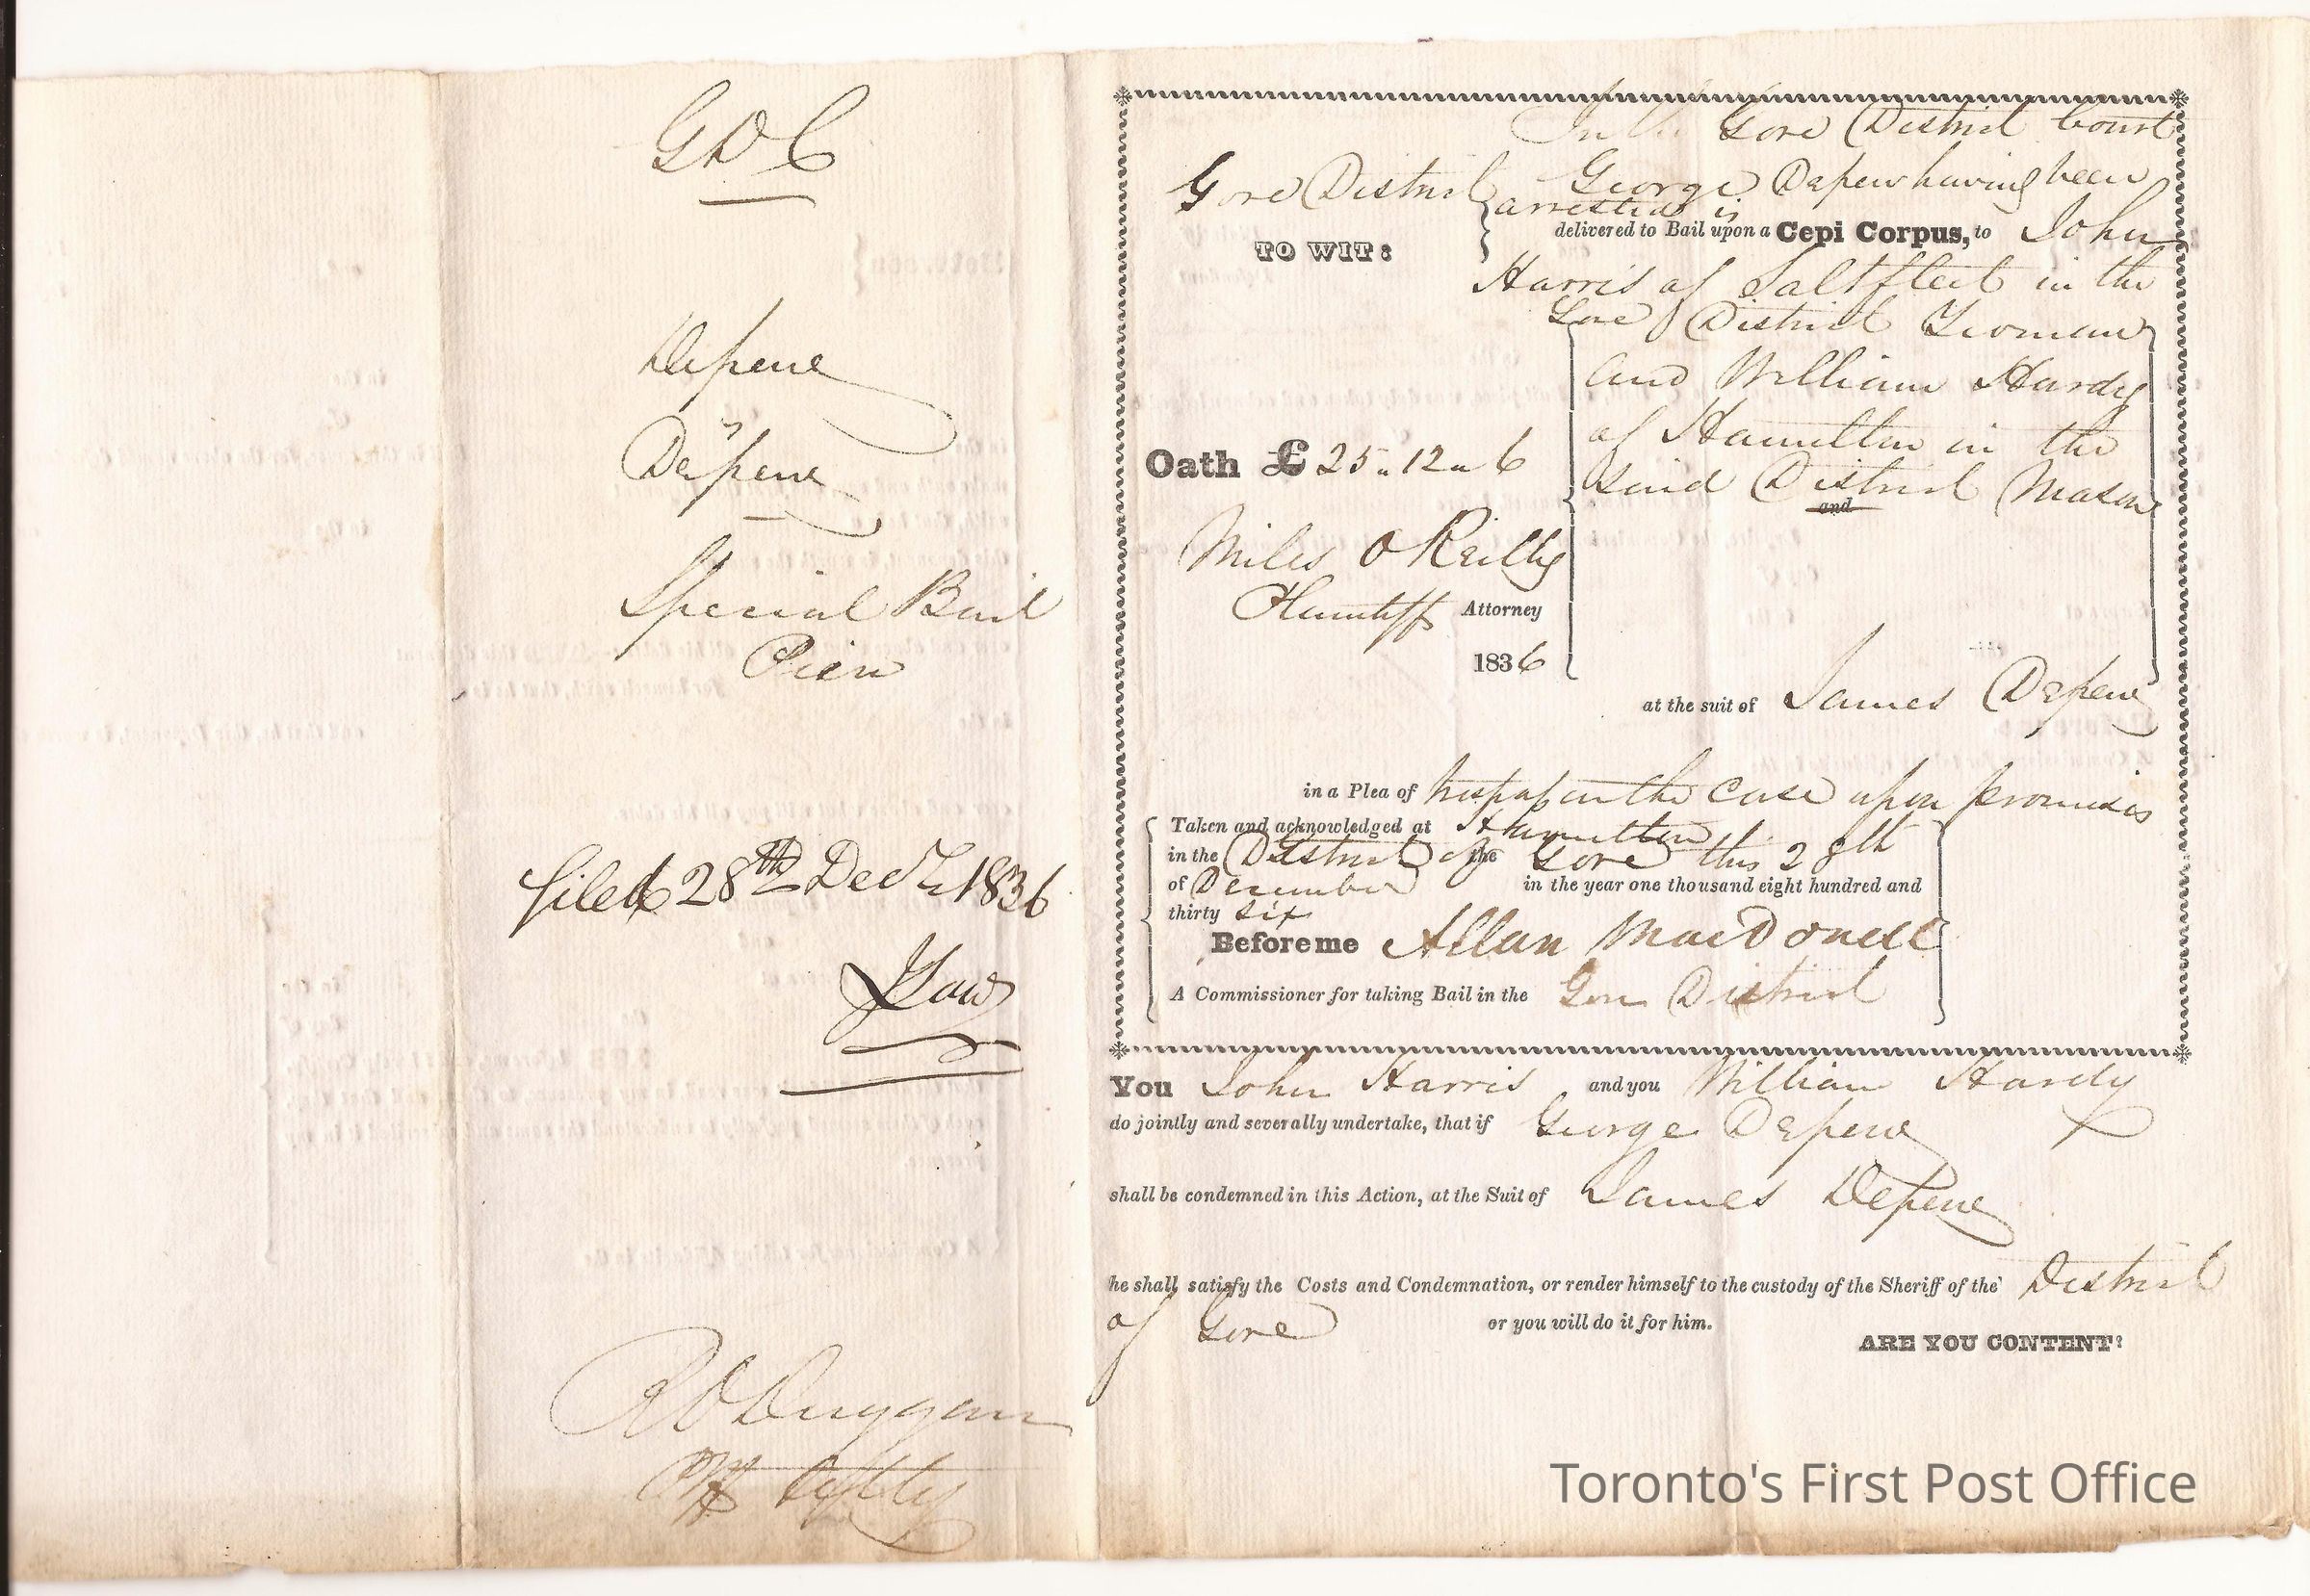 G D C
Depew
vs
Depew
Special Bail
Piece
filed 28th Decr 1836
Law
R O Duggan
Defts Atty
In the Gore District Court
Gore District
TO WIT:
George Depew having been
arrested is
delivered to Bail upon a Cepi Corpus, to John
Harris of Saltfleet in the
Gore District Yeoman
and William Hardy
of Hamilton in the
Said District Mason
and
Oath £ 25 " 12 " 6
Miles O Reilly
Plaintiff Attorney
1836
at the suit of James Depew
in a Plea of trespass on the case upon promises
Taken and acknowledged at Hamilton
in the District of the Gore this 28th
of December in the year one thousand eight hundred and
thirty six
Before me Allan MacDonell
A Commissioner for taking Bail in the Gore District
You John Harris and you William Hardy
do jointly and severally undertake, that if George Depew
shall be condemned in this Action, at the Suit of James Depew
he shall satisfy the Costs and Condemnation, or render himself to the custody of the Sheriff of the District
of Gore or you will do it for him.
ARE YOU CONTENT?
Toronto's First Post Office